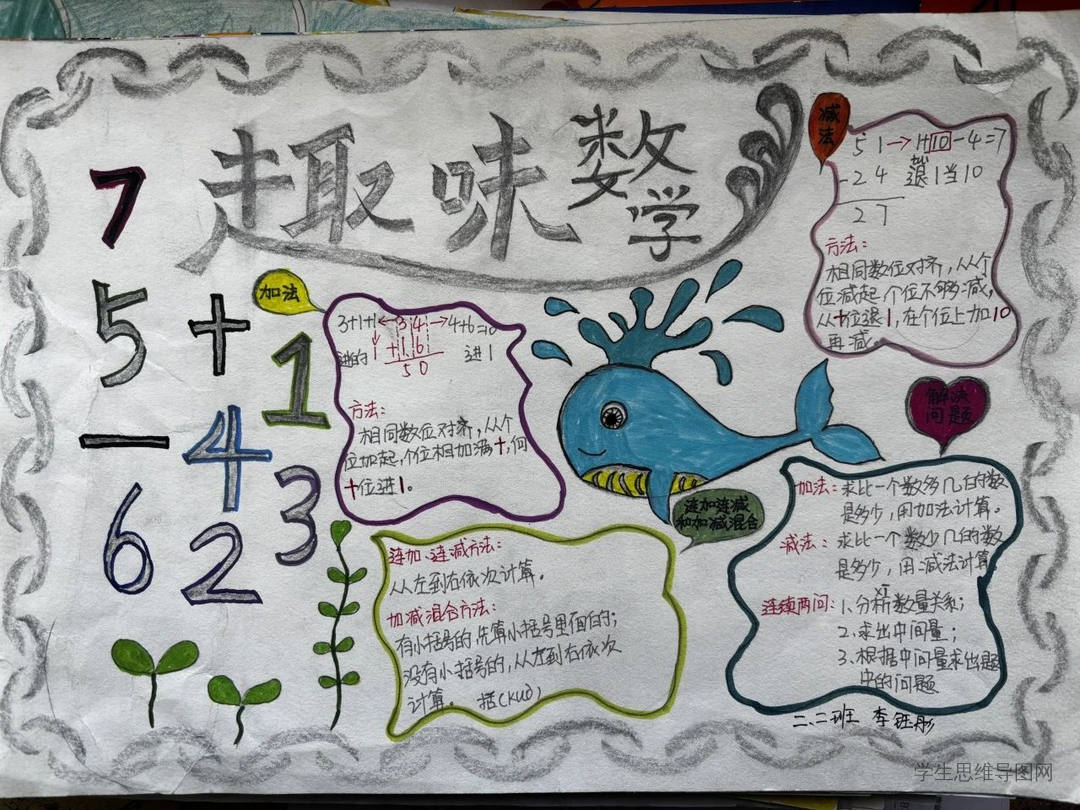 趣味数学
7
5
+
1
一
4
3
6
2
减法
51→11+10-4=7
-24 退1当10
27
方法:
相同数位对齐,从个
位减起,个位不够减,
从十位退1,在个位上加10
再减。
加法
3+1+1←34→4+6=10
进的1 +16 进1
50
方法:
相同数位对齐,从个
位加起,个位相加满十,向
十位进1。
连加连减
和加减混合
连加、连减方法:
从左到右依次计算。
加减混合方法:
有小括号的,先算小括号里面的;
没有小括号的,从左到右依次
计算。 括(kuò)
解决
问题
加法:求比一个数多几的数
是多少,用加法计算。
减法:求比一个数少几的数
是多少,用减法计算
连续两问:1.分析数量关系;
2.求出中间量;
3.根据中间量求出题
中的问题
二、二班 李钰彤
学生思维导图网